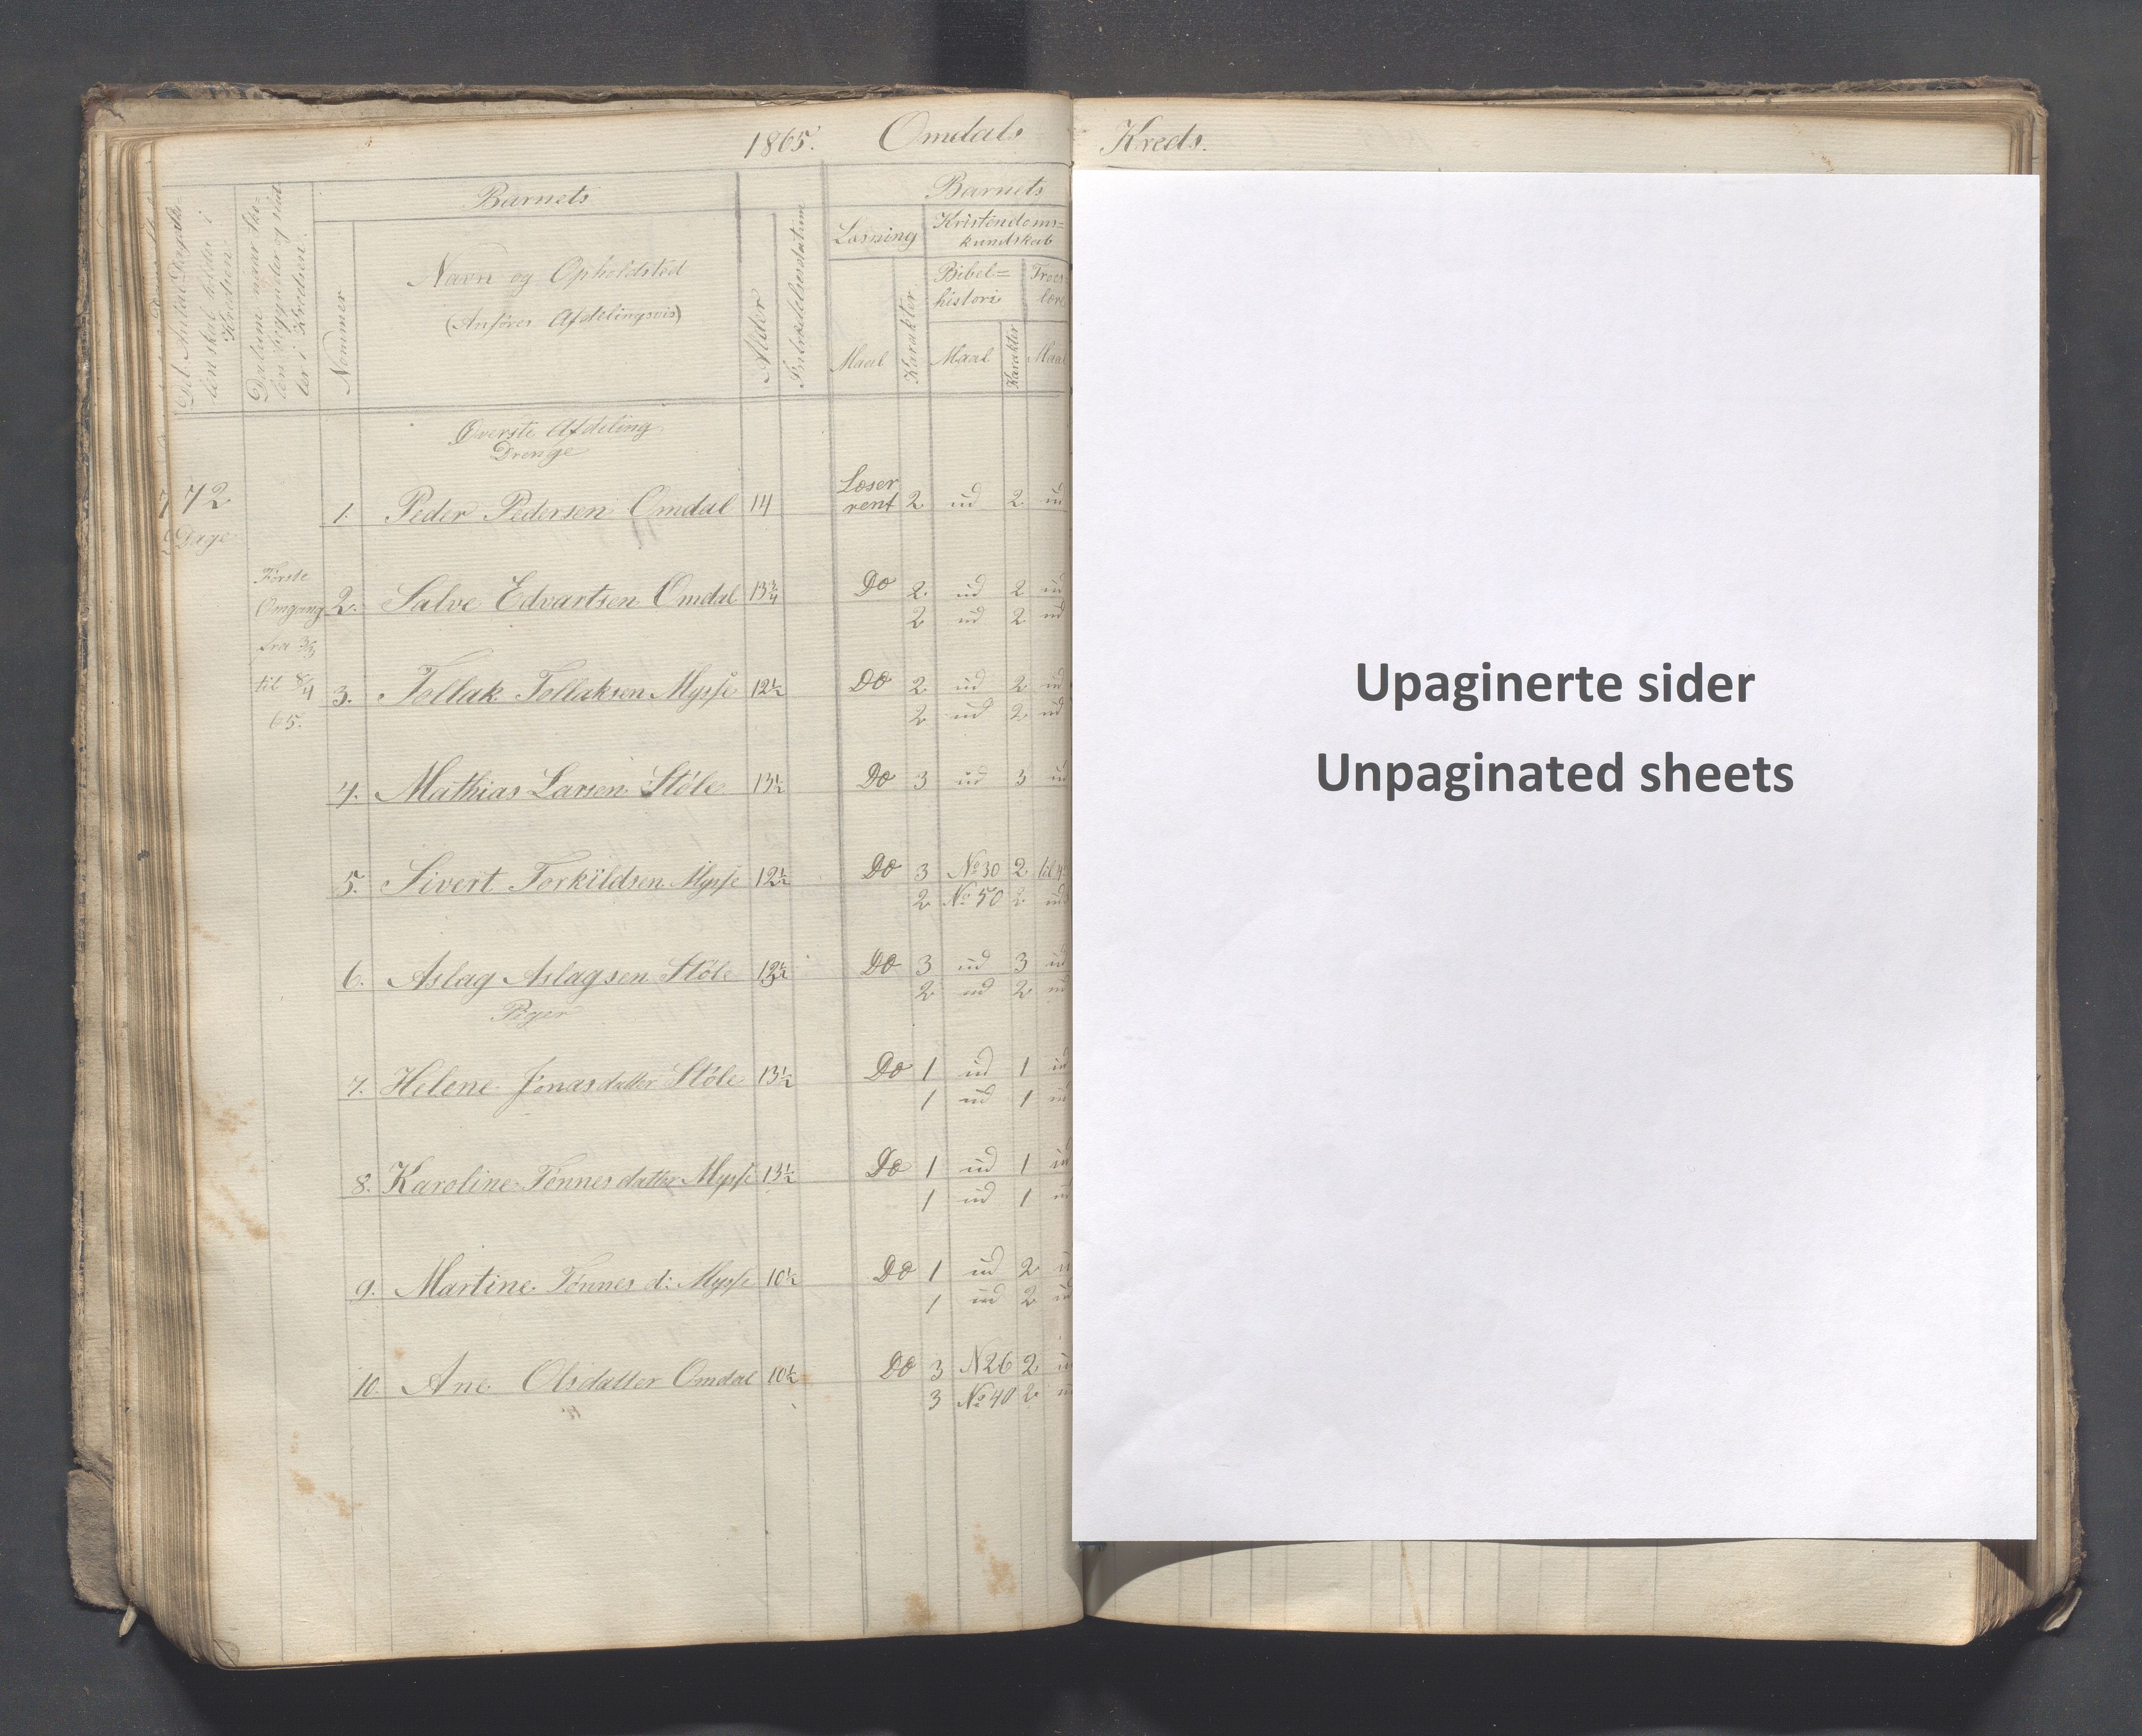 1865. Omdals Kreds.
Det Antal Dage Sko-
len skal holdes i
Kredsen
Datum naar Sko-
len begynder og slut-
ter i Kredsen.
Nummer
Barnets
Navn og Opholdsted
(Anføres Afdelingsvis)
Alder
Indtrædelsesdatum
Barnets
Læsning
Kristendoms=
kundskab
Bibel=
histori
Troes-
lære
Maal
Karakter
Maal
Karakter
Maal
Øverste Afdeling
Drenge
72
Dage
1. Peder Pedersen Omdal 14 Læser rent 2 ud 2 ud
Første
Omgang
fra
til 8/4
65.
2. Salve Edvartsen Omdal 13 3/4 Do 2 ud 2 ud
2 ud 2 ud
3. Tollak Tollaksen Mysse 12 1/2 Do 2 ud 2 ud
2 ud 2 ud
4. Mathias Larsen Støle 13 1/2 Do 3 ud 3 ud
5. Sivert Torkildsen Mysse 12 1/2 Do 3 No 30 2 til 4
2 No 50 2 ud
6. Aslag Aslagsen Støle 12 1/2 Do 3 ud 3 ud
2 ud 2 ud
Piger
7. Helene Jonasdatter Støle 13 1/2 Do 1 ud 1 ud
1 ud 1 ud
8. Karoline Tønnesdatter Mysse 13 1/2 Do 1 ud 1 ud
1 ud 1 ud
9. Martine Tønnes d: Mysse 10 1/2 Do 1 ud 2 u
1 ud 2 ud
10. Ane Olsdatter Omdal 10 1/2 Do 3 N26 2 u
3 No 40 2 u
Upaginerte sider
Unpaginated sheets